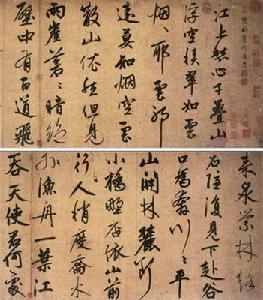 江上愁心千疊山
浮空積翠如雲
烟〻耶雲耶
遠莫知烟空雲
散山依然但見
兩崖蒼〻暗絕
壑中有百道飛
來泉縈林絡
石隱復見下赴谷
口為奔川〻平
山開林麓斷
小橋野店依山前
行人稍度喬木
外漁舟一葉江
吞天使君何處